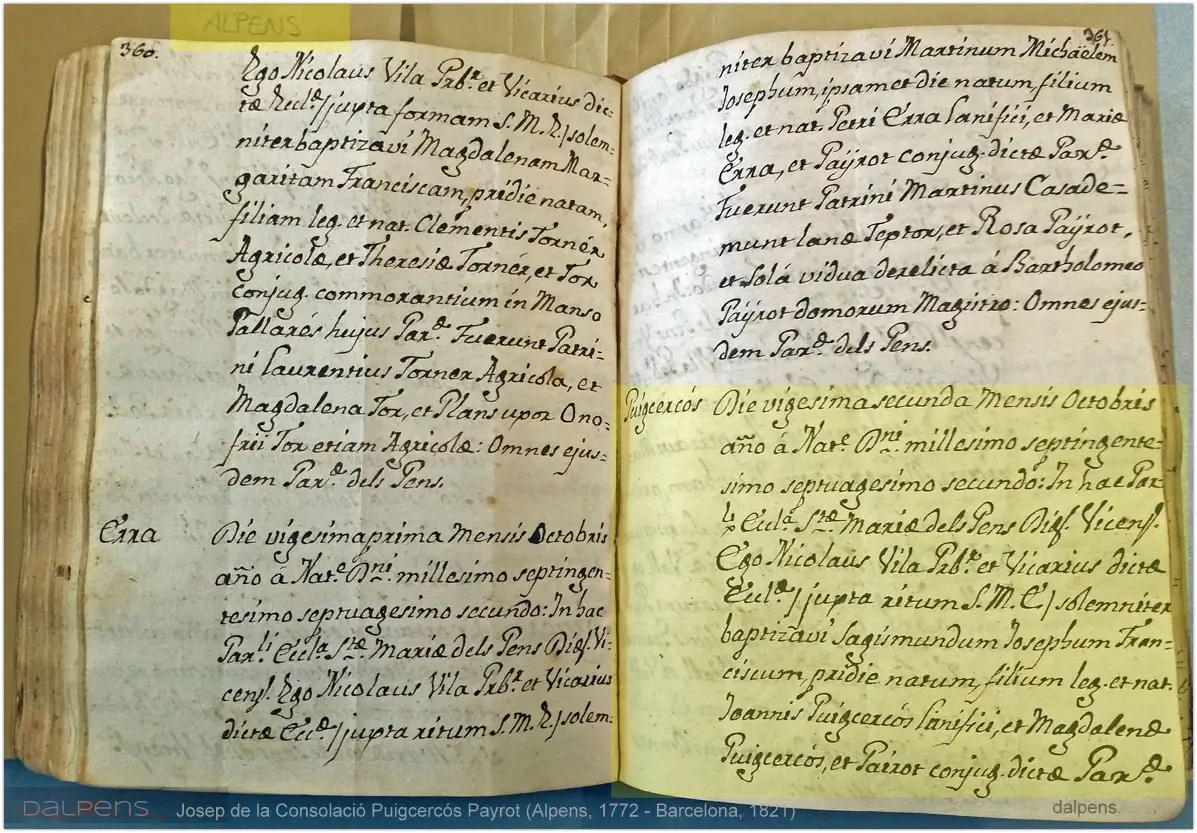 ALPENS
360.
Ego Nicolaus Vila Prb.r et Vicarius dic=
tæ Eccl.æ / juxta formam S. M. E / solem=
niter baptizavi Magdalenam Mar=
garitam Franciscam, pridie natam,
filiam leg. et nat. Clementis Tornér
Agricolæ, et Theresiæ Tornér, et Tor
conjug. commorantium in Manso
Pallarés hujus Par.æ Fuerunt Patri=
ni Laurentius Torner Agricola, et
Magdalena Tor, et Plans uxor Ono=
frii Tor etiam Agricolæ: Omnes ejus=
dem Par.æ dels Pens.
Erra
Die vigesima prima Mensis Octobris
año á Nat.e Dni. millesimo septingen=
tesimo septuagesimo secundo: In hac
Par.li Eccl.a S.tæ Mariæ dels Pens Diœs. Vi=
cens. Ego Nicolaus Vila Prb.r et Vicarius
dictæ Ecc.æ / juxta ritum S. M. E / solem=
361.
niter baptizavi Martinum Michaëlem
Josephum, ipsamet die natum, filium
leg. et nat. Petri Erra Lanifici, et Mariæ
Erra, et Paÿrot conjug. dictæ Par.æ
Fuerunt Patrini Martinus Casade=
munt lanæ Textor, et Rosa Paÿrot,
et Solá vidua derelicta á Bartholomeo
Paÿrot domorum Magistro: Omnes ejus=
dem Par.æ dels Pens.
Puigcercós
Die vigesima secunda Mensis Octobris
año á Nat.e Dni. millesimo septingente=
simo septuagesimo secundo: In hac Par=
li Eccl.a S.tæ Mariæ dels Pens Diœs. Vicens.
Ego Nicolaus Vila Prb.r et Vicarius dictæ
Eccl.æ / juxta ritum S. M. E / solemniter
baptizavi Sagismundum Josephum Fran=
ciscum, pridie natum, filium leg. et nat.
Joannis Puigcercós Lanifici, et Magdalenæ
Puigcercós, et Pairot conjug. dictæ Par.æ
DALPENS
Josep de la Consolació Puigcercós Payrot (Alpens, 1772 - Barcelona, 1821)
dalpens.